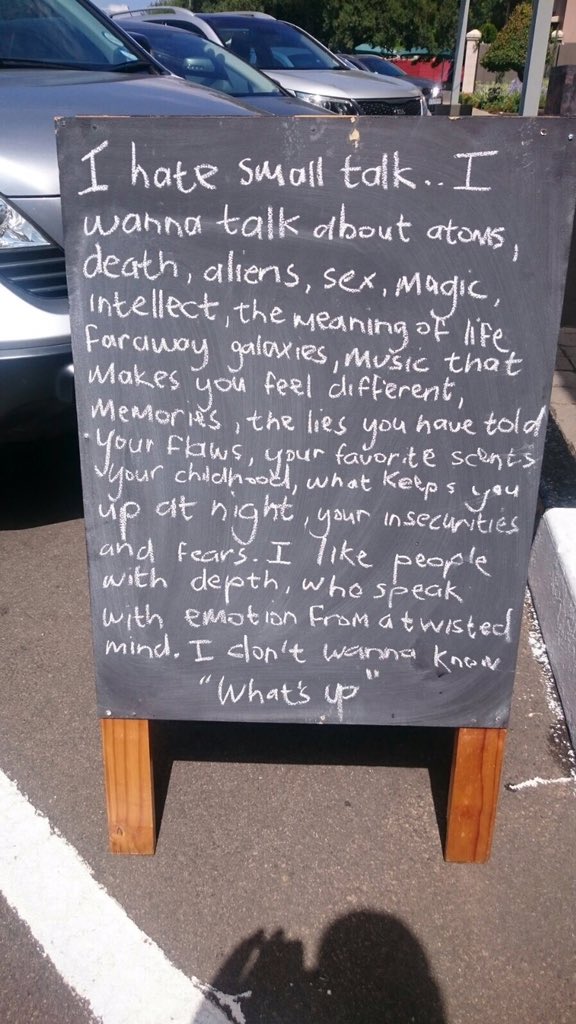 I hate small talk.. I
wanna talk about atoms,
death, aliens, sex, magic,
intellect, the meaning of life
faraway galaxies, music that
makes you feel different,
memories, the lies you have told
your flaws, your favorite scents
your childhood, what keeps you
up at night, your insecurities
and fears. I like people
with depth, who speak
with emotion from a twisted
mind. I don't wanna know
"What's up"